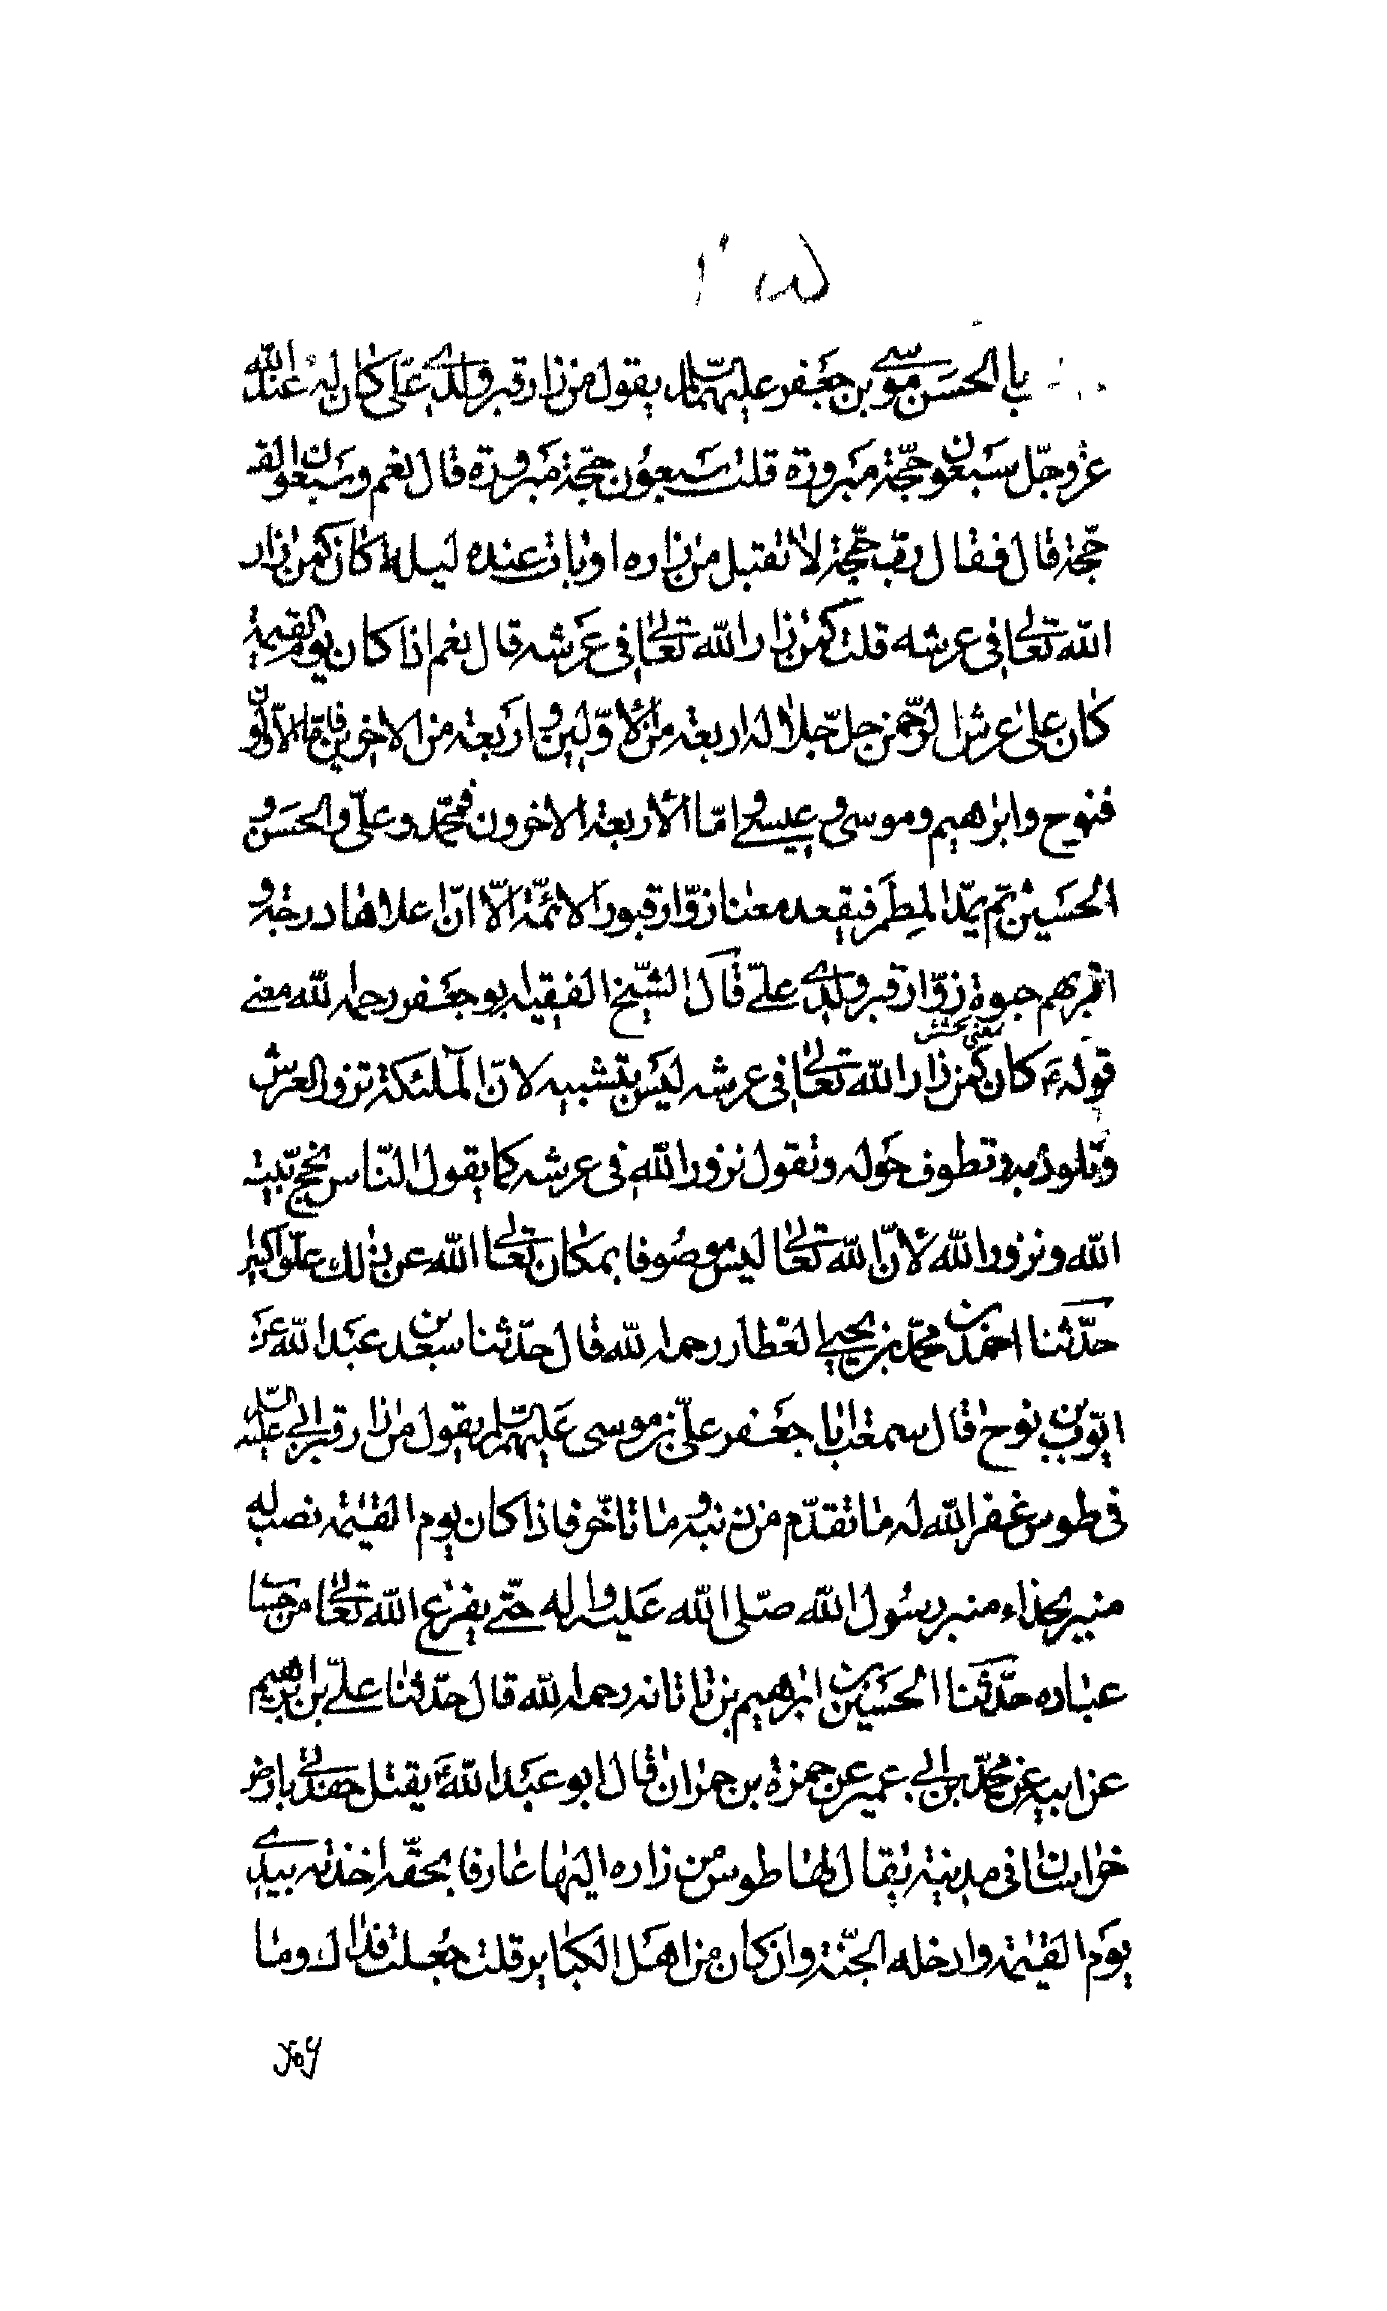 با الحسن موسى بن جعفر عليهما السلام يقول من زار قبر ولدي علي كان له عند الله
عز وجل سبعون حجّة مبرورة قلت سبعون حجّة مبرورة قال نعم وسبعون الف
حجّة قال فقال ربّ حجّة لا تقبل من زاره او بات عنده ليلة كان كمن زار
الله تعالى في عرشه قلت كمن زار الله تعالى في عرشه قال نعم اذا كان يوم القيمة
كان على عرش الرحمن جلّ جلاله اربعة من الأوّلين و اربعة من الاخرين فامّا الاوّلون
فنوح وابرهيم وموسى و عيسى و امّا الأربعة الاخرون فمحمّد وعلي والحسن و
الحسين ثم يمدّ المطمر فيقعد معنا زوّار قبور الائمّة الّا انّ اعلاها درجة و
اقربهم حبوة زوّار قبر ولدي علي قال الشيخ الفقيه ابو جعفر رحمه الله معنى
يعني
قوله ع كان كمن زار الله تعالى في عرشه ليس بتشبيه لانّ الملئكة تزور العرش
وتلوذ به و تطوف حوله وتقول نزور الله في عرشه كما يقول النّاس نحجّ بيت
الله ونزور الله لأنّ الله تعالى ليس موصوفا بمكان تعالى الله عن ذلك علوّا كبيرا
حدّثنا احمد بن محمّد بن يحيى العطار رحمه الله قال حدّثنا سعد بن عبد الله عن
ايّوب بن نوح قال سمعت ابا جعفر علي بن موسى عليهم السلام يقول من زار قبر ابي عليه السلام
في طوس غفر الله له ما تقدّم من ذنبه و ما تاخّر فاذا كان يوم القيمة نصب له
منبر بحذاء منبر رسول الله صلى الله عليه واله حتّى يفرغ الله تعالى من حساب
عباده حدّثنا الحسين بن ابرهيم بن ناتانه رحمه الله قال حدّثنا علي بن ابرهيم
عن ابيه عن محمّد بن ابي عمير عن حمزة بن حمران قال ابو عبد الله ع يقتل حفدتي بارض
خراسان في مدينة يقال لها طوس من زاره اليها عارفا بحقّه اخذته بيدي
يوم القيمة وادخله الجنّة وان كان من اهل الكباير قلت جعلت فداك وما